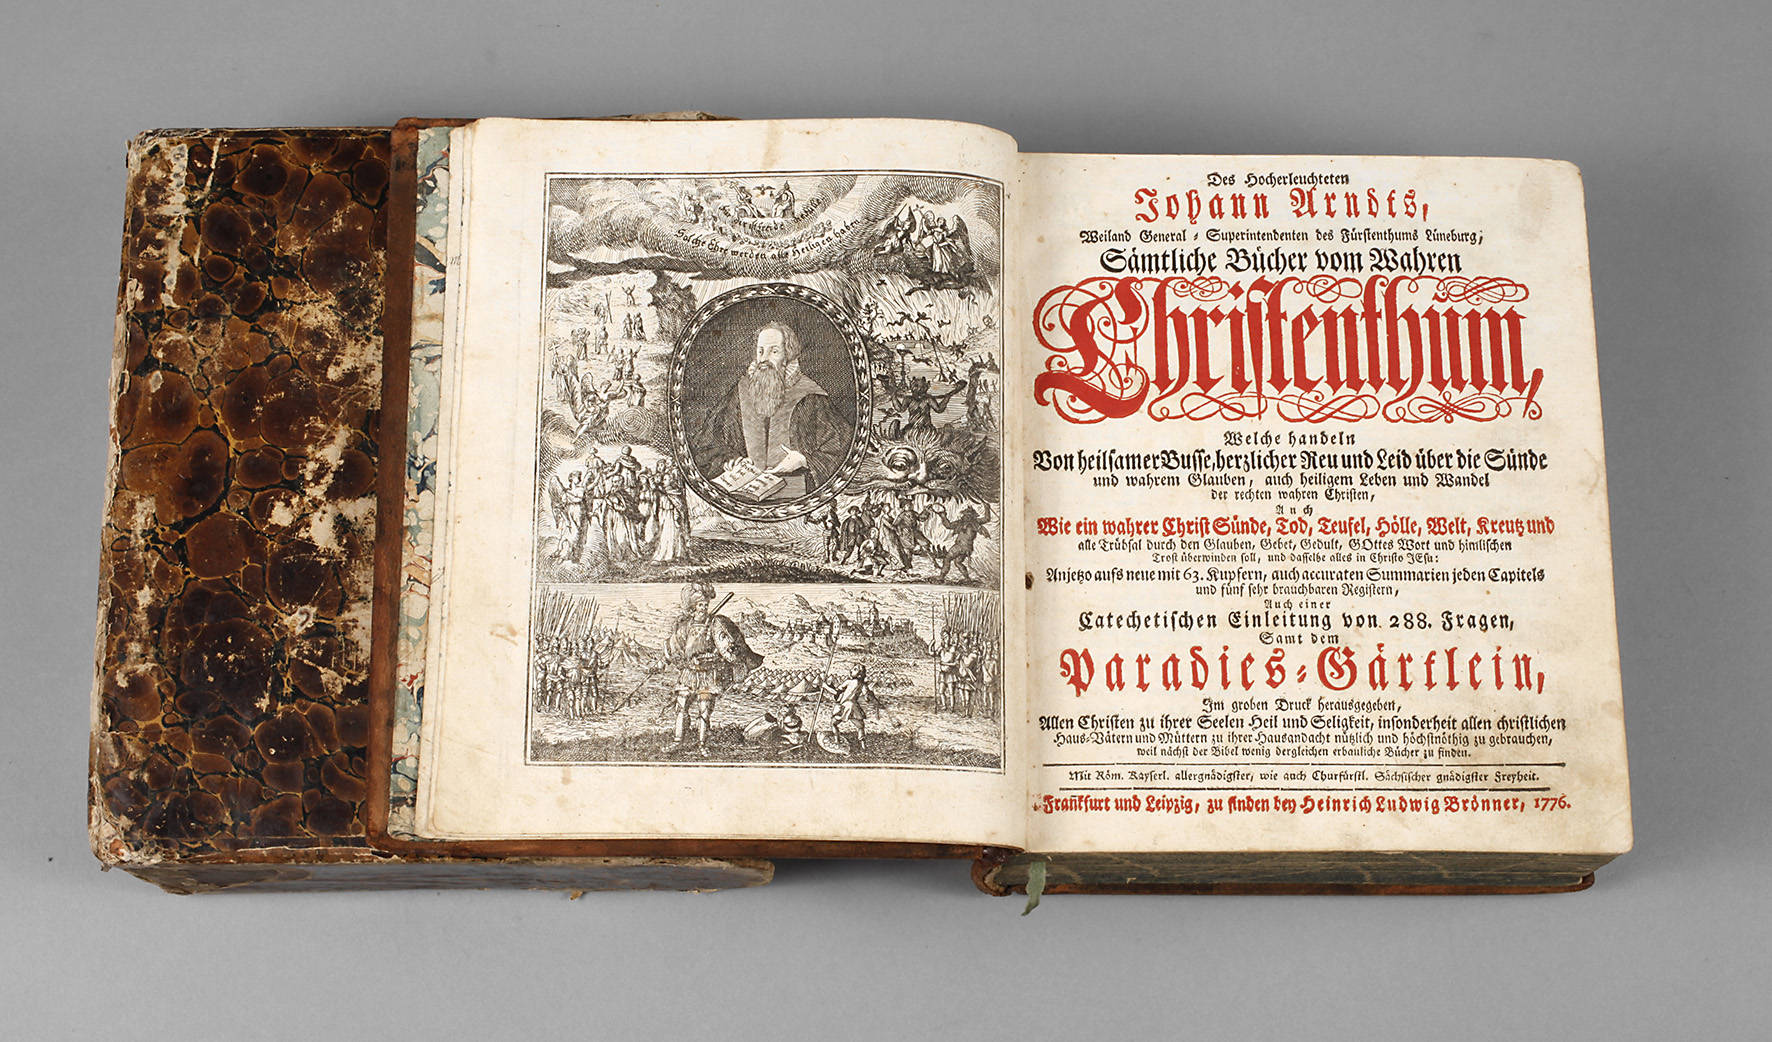 Solche Ehre werden alle Heiligen haben.
Des Hocherleuchteten
Johann Arndts,
Weiland General-Superintendenten des Fürstenthums Lüneburg,
Sämtliche Bücher vom Wahren
Christenthum,
Welche handeln
Von heilsamer Busse, herzlicher Reu und Leid über die Sünde
und wahrem Glauben, auch heiligem Leben und Wandel
der rechten wahren Christen,
Auch
Wie ein wahrer Christ Sünde, Tod, Teufel, Hölle, Welt, Kreutz und
alle Trübsal durch den Glauben, Gebet, Gedult, GOttes Wort und himlischen
Trost überwinden soll, und dasselbe alles in Christo JEsu:
Anjetzo aufs neue mit 63. Kupfern, auch accuraten Summarien jeden Capitels
und fünf sehr brauchbaren Registern,
Auch einer
Catechetischen Einleitung von 288. Fragen,
Samt dem
Paradies-Gärtlein,
Im groben Druck herausgegeben,
Allen Christen zu ihrer Seelen Heil und Seligkeit, insonderheit allen christlichen
Haus-Vätern und Müttern zu ihrer Hausandacht nützlich und höchstnöthig zu gebrauchen,
weil nächst der Bibel wenig dergleichen erbauliche Bücher zu finden.
Mit Röm. Kayserl. allergnädigster, wie auch Churfürstl. Sächsischer gnädigster Freyheit.
Franckfurt und Leipzig, zu finden bey Heinrich Ludwig Brönner, 1776.